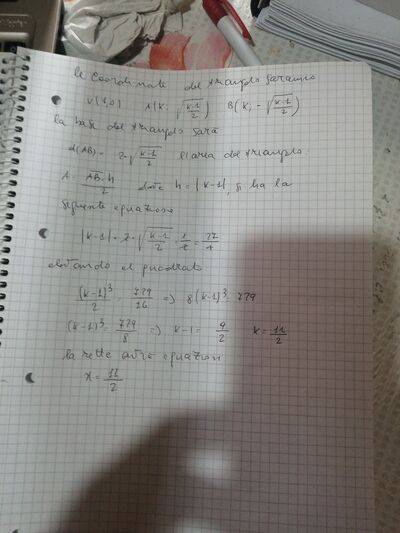 le coordinate del triangolo saranno
V(1,0) A(k; √(k-1)/2) B(k; -√(k-1)/2)
la base del triangolo sarà
d(AB) = 2·√(k-1)/2 l'area del triangolo
A = AB·h/2 dove h = |k-1|, si ha la
seguente equazione
|k-1| · 2 · √(k-1)/2 · 1/2 = 27/4
elevando al quadrato
(k-1)³/2 = 729/16 => 8(k-1)³ = 729
(k-1)³ = 729/8 => k-1 = 9/2 k = 11/2
la retta avrà equazione
x = 11/2